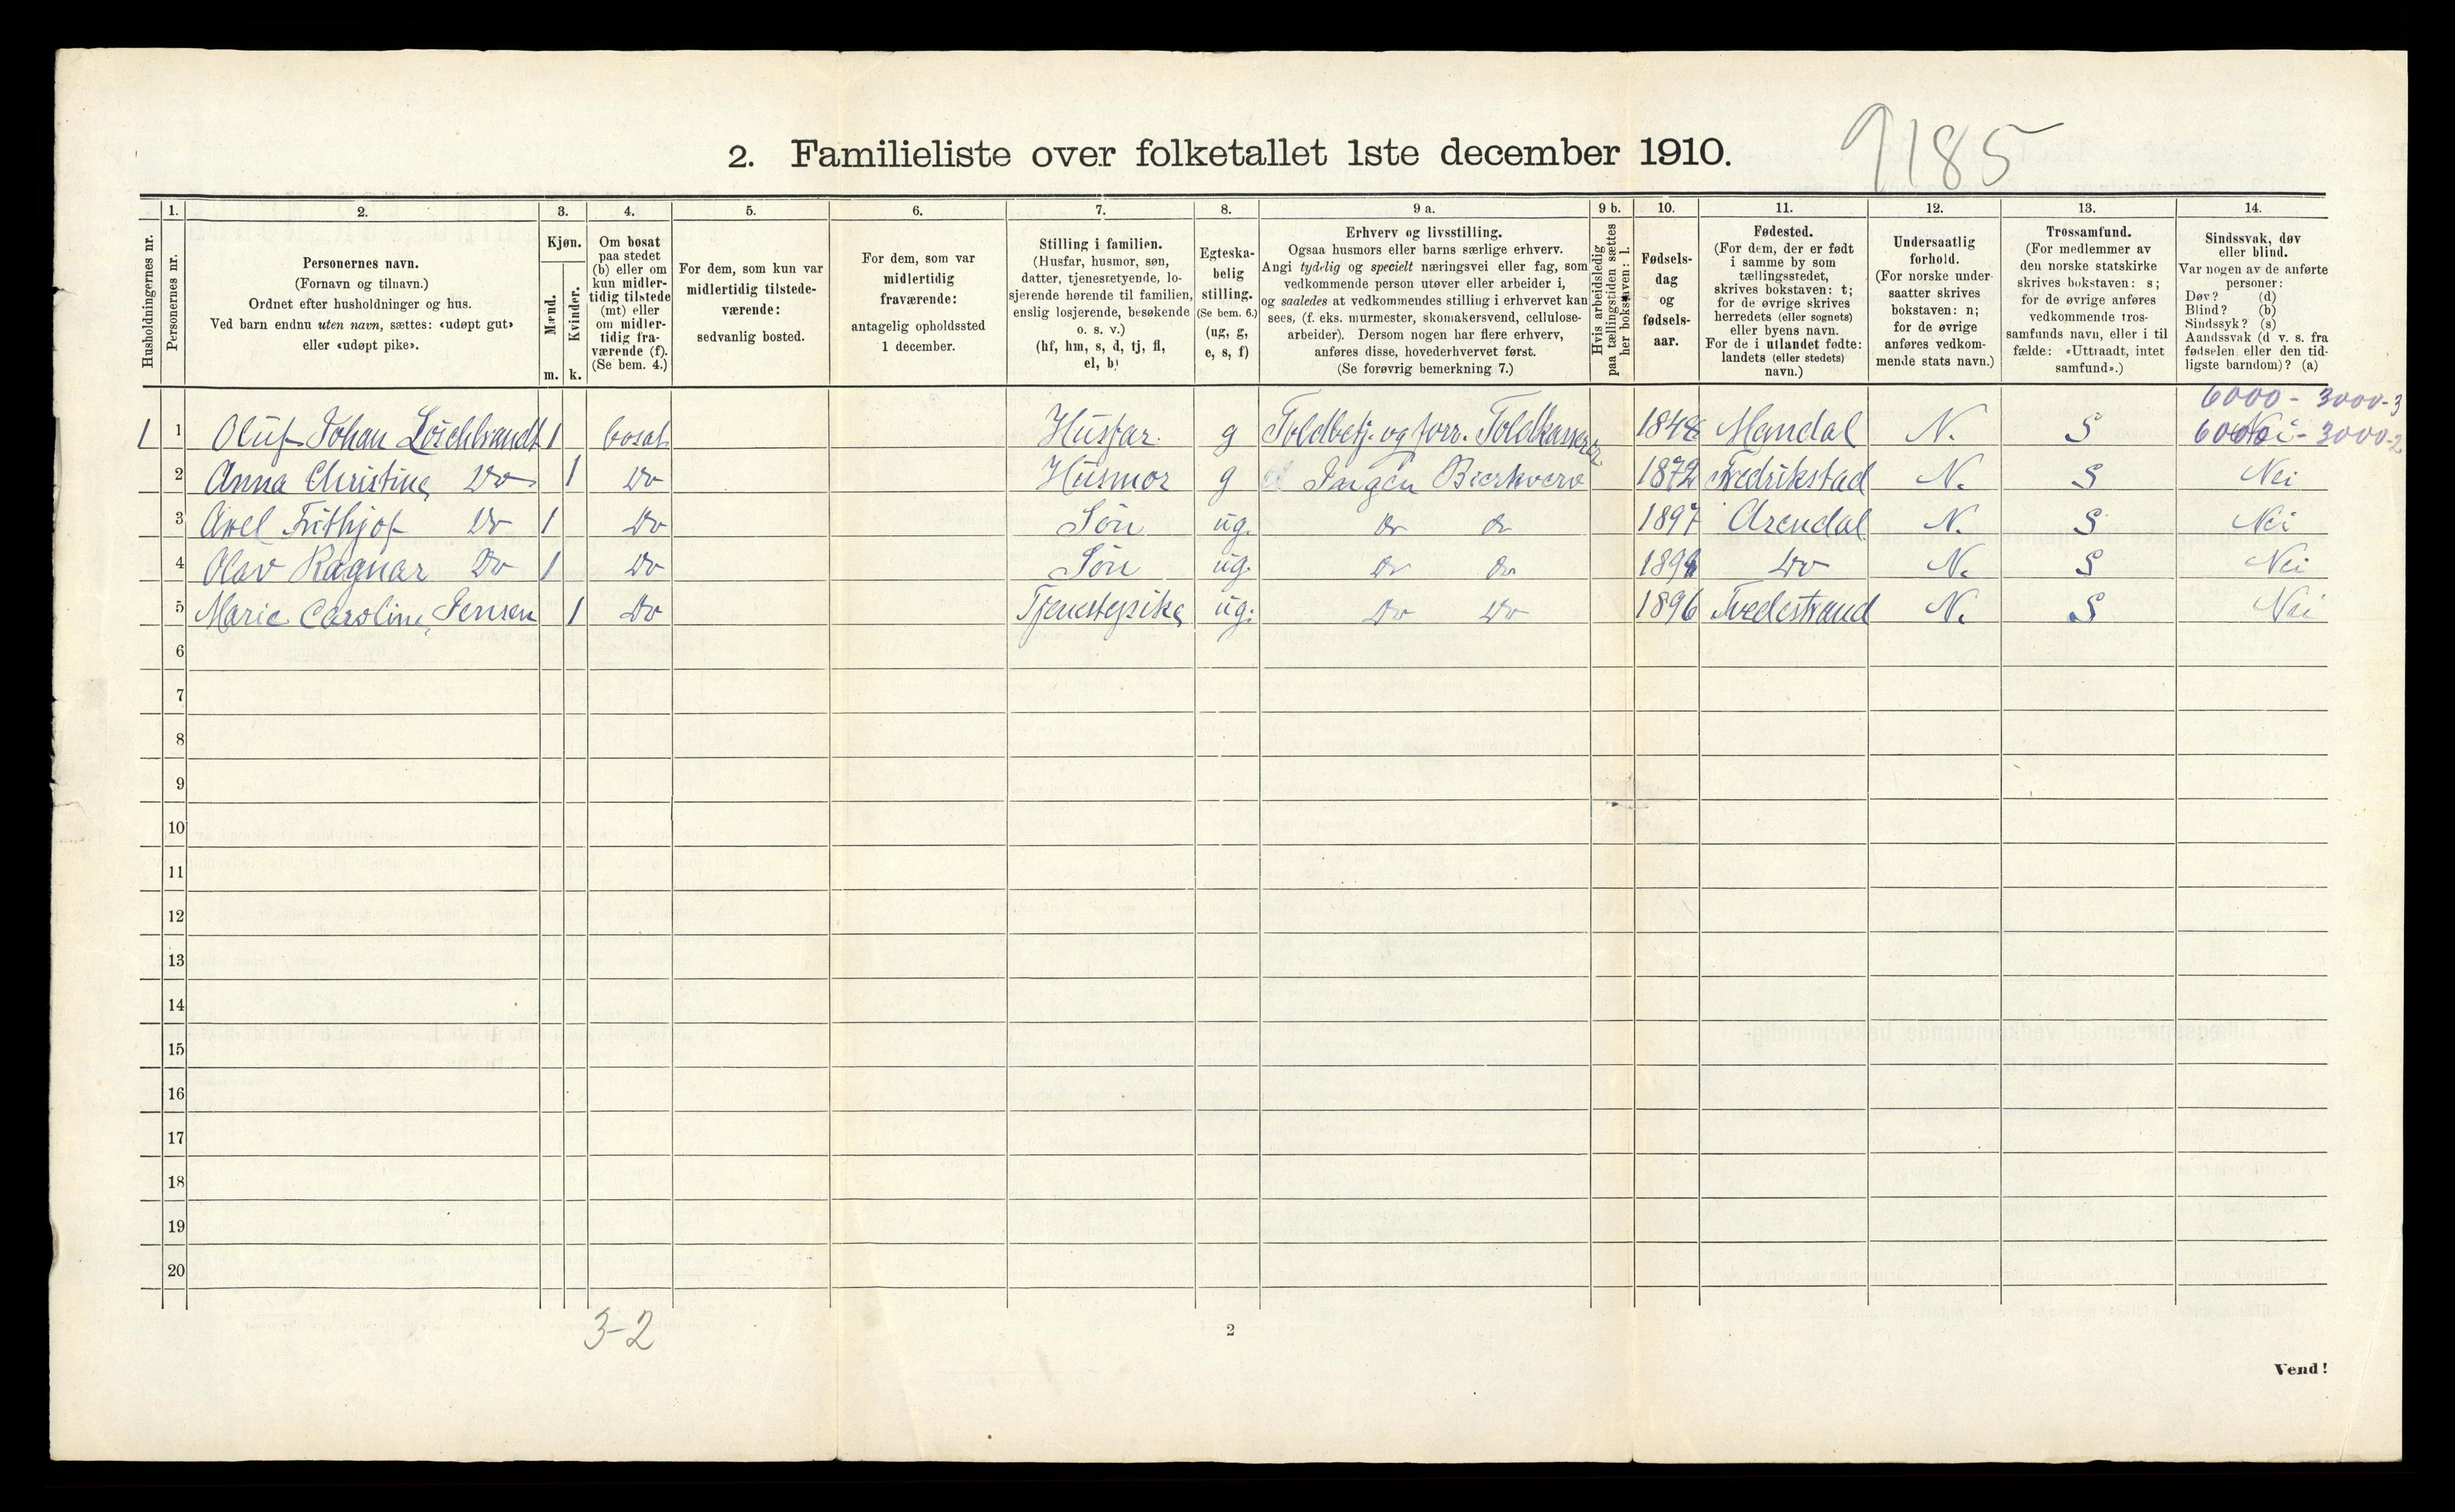 2. Familieliste over folketallet 1ste december 1910.
1185
Husholdningernes nr.
1.
Personernes nr.
2.
Personernes navn.
(Fornavn og tilnavn.)
Ordnet efter husholdninger og hus.
Ved barn endnu uten navn, sættes: «udøpt gut»
eller «udøpt pike».
3.
Kjøn.
Mænd.
Kvinder.
m. k.
4.
Om bosat
paa stedet
(b) eller om
kun midler-
tidig tilstede
(mt) eller
om midler-
tidig fra-
værende (f).
(Se bem. 4.)
5.
For dem, som kun var
midlertidig tilstede-
værende:
sedvanlig bosted.
6.
For dem, som var
midlertidig
fraværende:
antagelig opholdssted
1 december.
7.
Stilling i familien.
(Husfar, husmor, søn,
datter, tjenestetyende, lo-
sjerende hørende til familien,
enslig losjerende, besøkende
o. s. v.)
(hf, hm, s, d, tj, fl,
el, b)
8.
Egteska-
belig
stilling.
(Se bem. 6.)
(ug, g,
e, s, f)
9 a.
Erhverv og livsstilling.
Ogsaa husmors eller barns særlige erhverv.
Angi tydelig og specielt næringsvei eller fag, som
vedkommende person utøver eller arbeider i,
og saaledes at vedkommendes stilling i erhvervet kan
sees, (f. eks. murmester, skomakersvend, cellulose-
arbeider). Dersom nogen har flere erhverv,
anføres disse, hovederhvervet først.
(Se forøvrig bemerkning 7.)
9 b.
Hvis arbeidsledig
paa tællingstiden sættes
her bokstaven: l.
10.
Fødsels-
dag
og
fødsels-
aar.
11.
Fødested.
(For dem, der er født
i samme by som
tællingsstedet,
skrives bokstaven: t;
for de øvrige skrives
herredets (eller sognets)
eller byens navn.
For de i utlandet fødte:
landets (eller stedets)
navn.)
12.
Undersaatlig
forhold.
(For norske under-
saatter skrives
bokstaven: n;
for de øvrige
anføres vedkom-
mende stats navn.)
13.
Trossamfund.
(For medlemmer av
den norske statskirke
skrives bokstaven: s;
for de øvrige anføres
vedkommende tros-
samfunds navn, eller i til
fælde: «Uttraadt, intet
samfund».)
14.
Sindssvak, døv
eller blind.
Var nogen av de anførte
personer:
Døv? (d)
Blind? (b)
Sindssyk? (s)
Aandssvak (d v. s. fra
fødselen eller den tid-
ligste barndom)? (a)
6000 - 3000-3
1 1 Oluf Johan Löschbrandt 1 bosat Husfar. g Toldbetj. og forr. Toldkasserer 1848 Mandal N. S Nei 6000 - 3000-2
2 Anna Christine Do 1 Do Husmor g Ingen Bierhverv 1872 Fredrikstad N. S Nei
3 Axel Frithjof Do 1 Do Sön ug. do do 1897 Arendal N. S Nei
4 Olav Ragnar Do 1 Do Sön ug. do do Do N. S Nei
5 Marie Caroline Jensen 1 Do Tjenestepike ug. Do Do 1896 Tvedestrand N. S Nei
6
7
8
9
10
11
12
13
14
15
16
17
18
19
20
3-2
2
Vend!